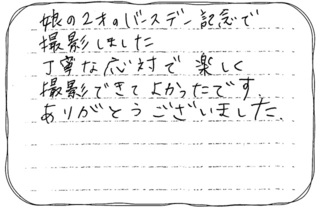 娘の2才のバースデー記念で
撮影しました
丁寧な応対で楽しく
撮影できてよかったです.
ありがとうございました.